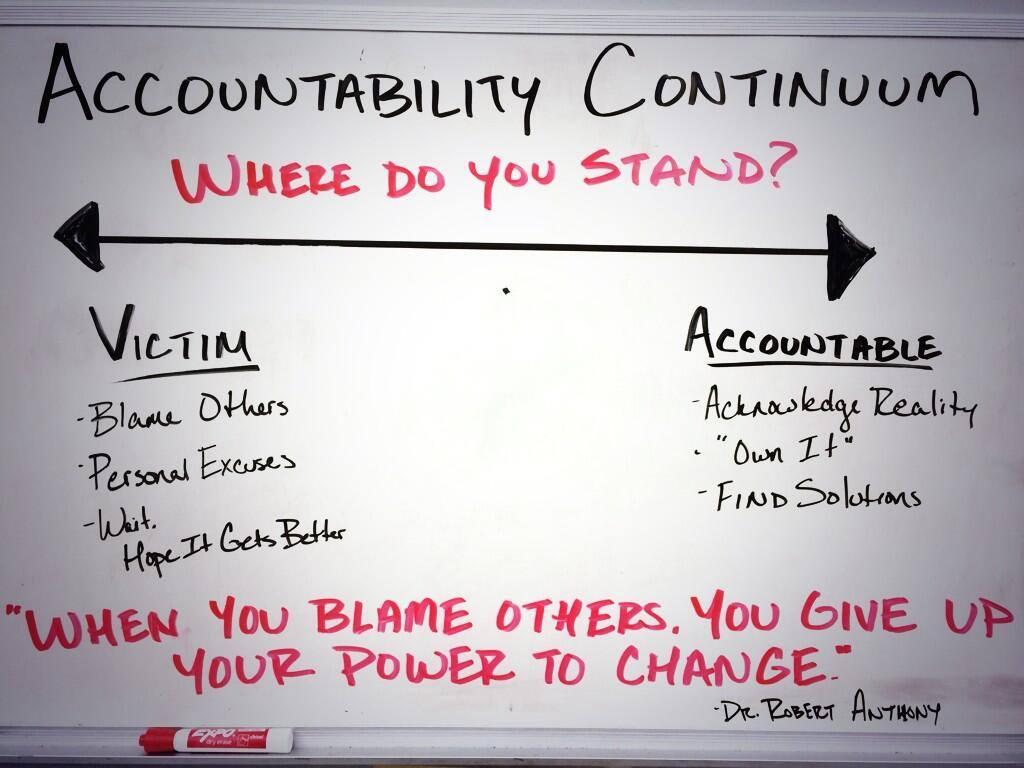 ACCOUNTABILITY CONTINUUM
WHERE DO YOU STAND?
VICTIM
- Blame Others
- Personal Excuses
- Wait.
Hope It Gets Better
ACCOUNTABLE
- Acknowledge Reality
- "Own It"
- FIND Solutions
"WHEN YOU BLAME OTHERS. YOU GIVE UP
YOUR POWER TO CHANGE."
- DR. ROBERT ANTHONY
EXPO
dry erase